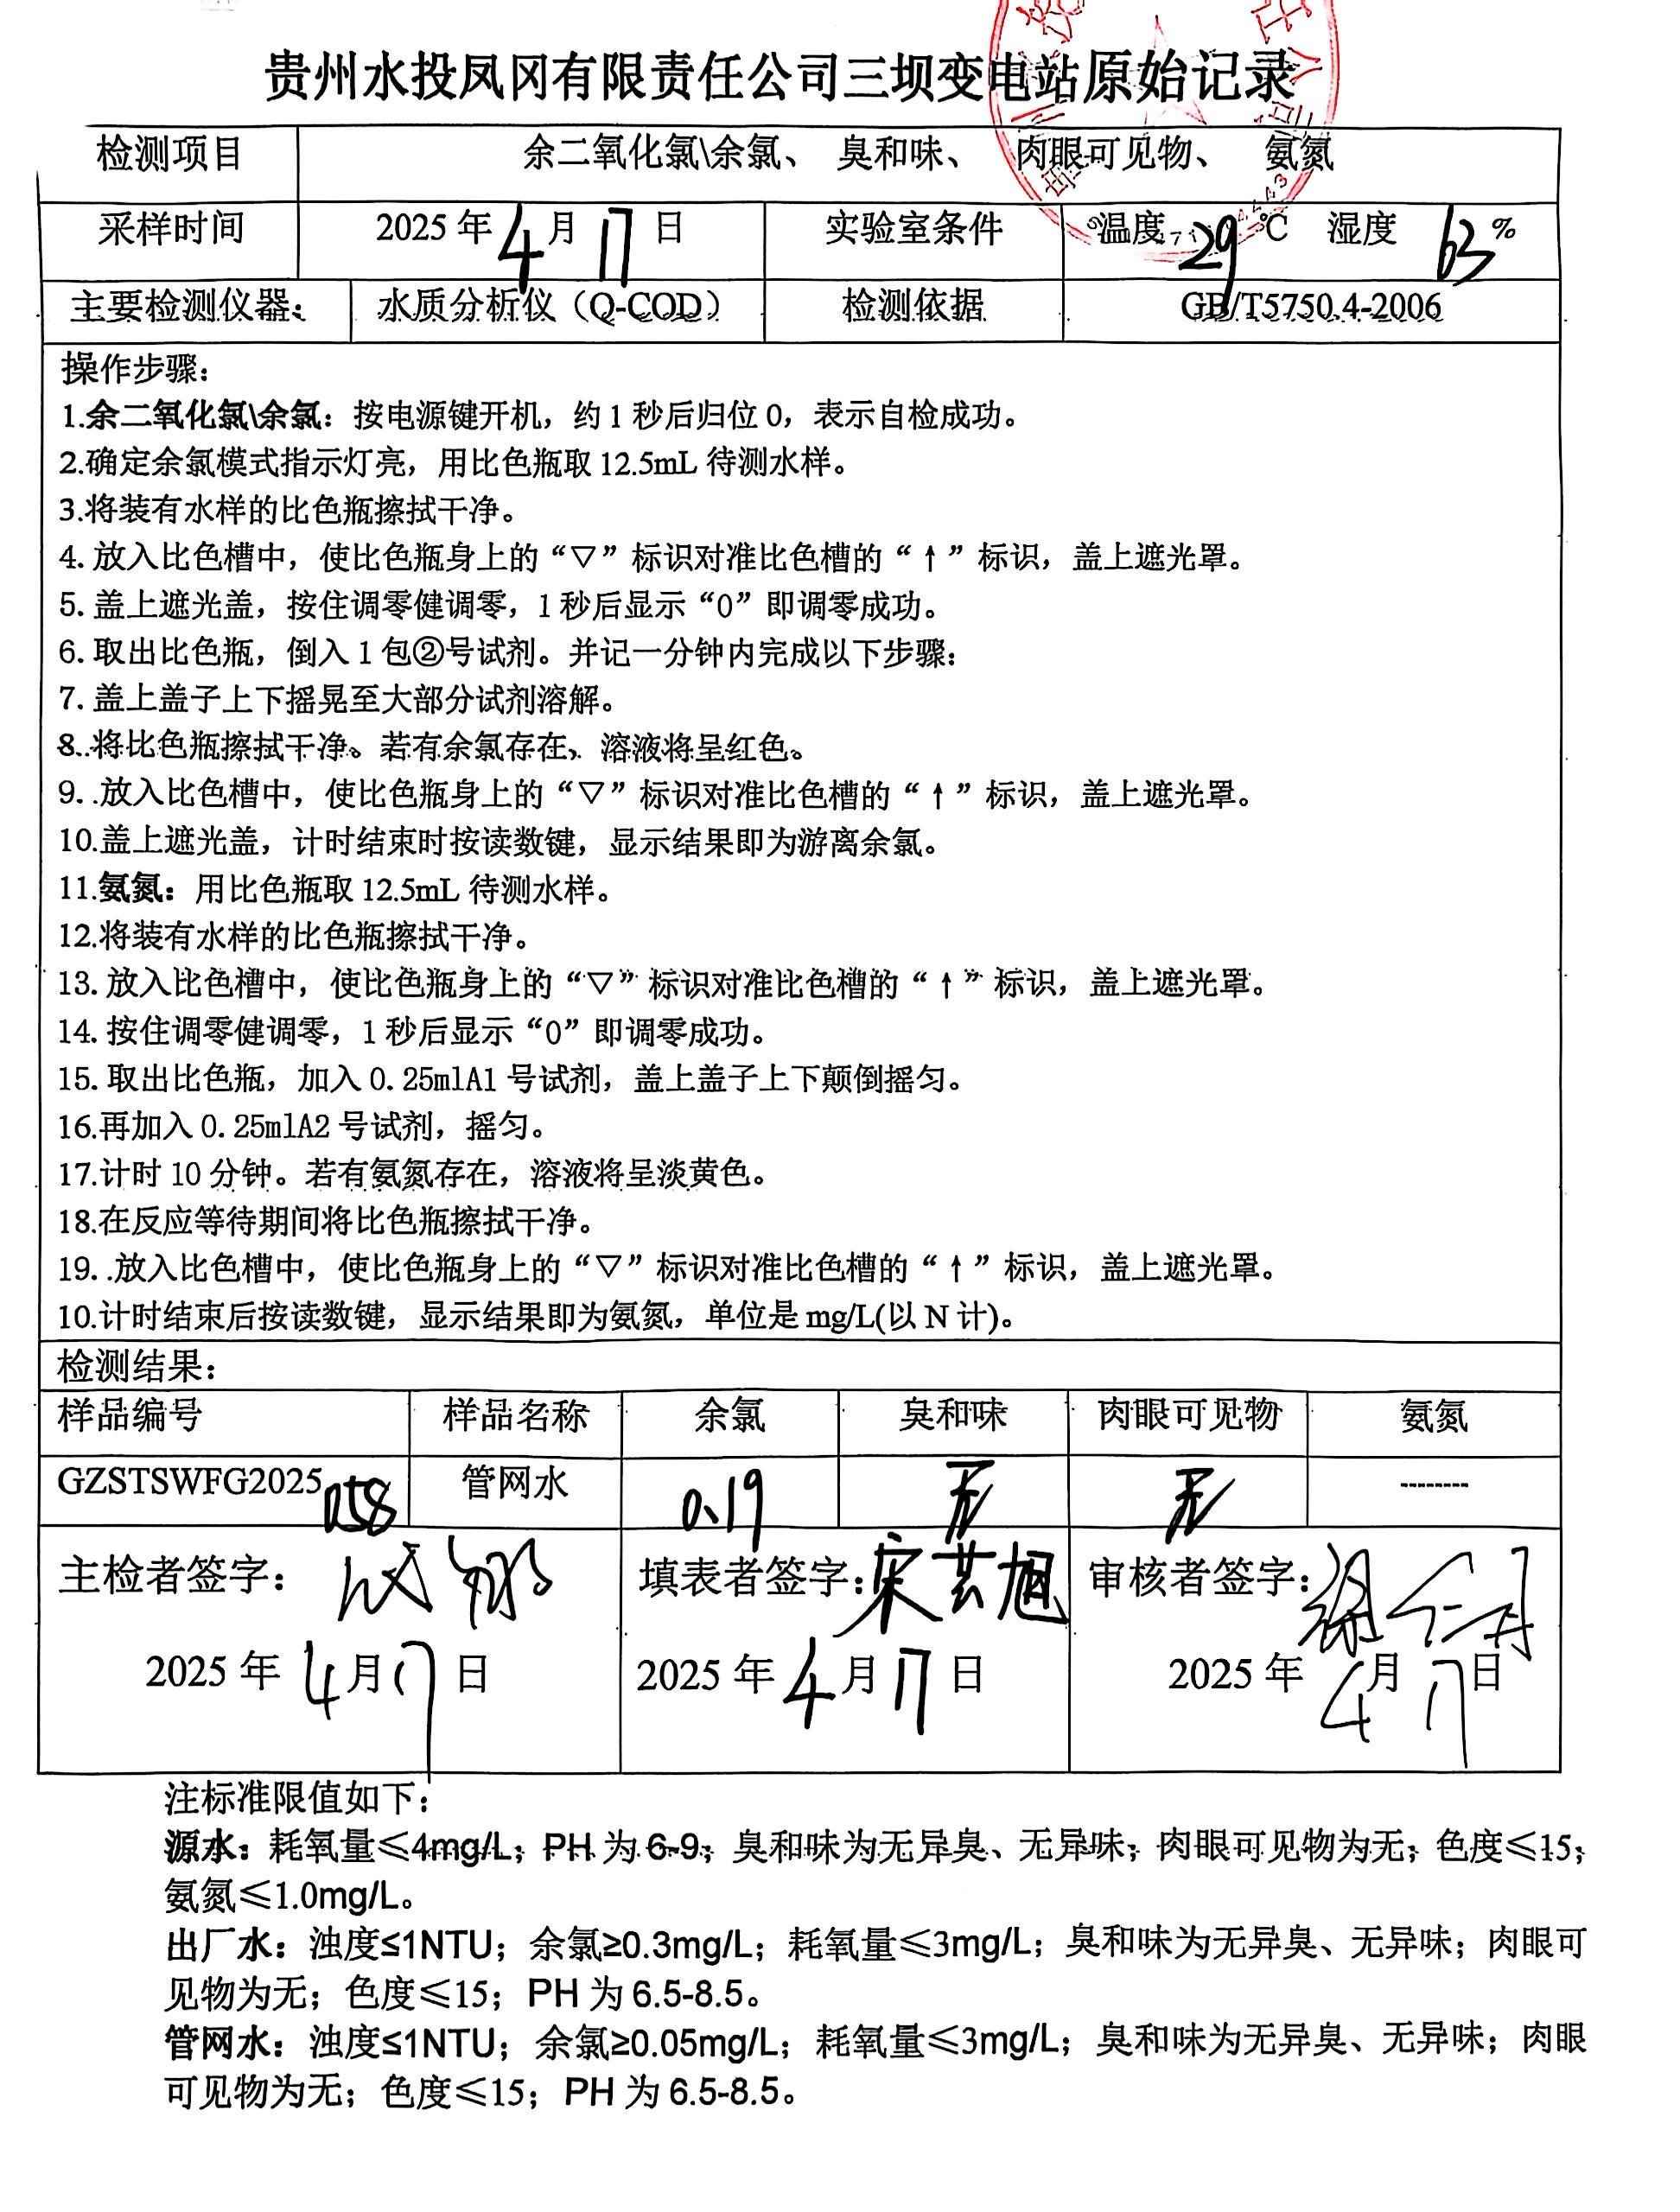 贵州水投凤冈有限责任公司三坝变电站原始记录
检测项目 余二氧化氯\余氯、 臭和味、 肉眼可见物、 氨氮
采样时间 2025 年 4 月 17 日 实验室条件 温度 29 ℃ 湿度 63 %
主要检测仪器： 水质分析仪（Q-COD） 检测依据 GB/T5750.4-2006
操作步骤：
1.余二氧化氯\余氯：按电源键开机，约 1 秒后归位 0，表示自检成功。
2.确定余氯模式指示灯亮，用比色瓶取 12.5mL 待测水样。
3.将装有水样的比色瓶擦拭干净。
4. 放入比色槽中，使比色瓶身上的“▽”标识对准比色槽的“↑”标识，盖上遮光罩。
5. 盖上遮光盖，按住调零健调零，1 秒后显示“0”即调零成功。
6. 取出比色瓶，倒入 1 包②号试剂。并记一分钟内完成以下步骤：
7. 盖上盖子上下摇晃至大部分试剂溶解。
8..将比色瓶擦拭干净。若有余氯存在，溶液将呈红色。
9. .放入比色槽中，使比色瓶身上的“▽”标识对准比色槽的“↑”标识，盖上遮光罩。
10.盖上遮光盖，计时结束时按读数键，显示结果即为游离余氯。
11.氨氮：用比色瓶取 12.5mL 待测水样。
12.将装有水样的比色瓶擦拭干净。
13. 放入比色槽中，使比色瓶身上的“▽”标识对准比色槽的“↑”标识，盖上遮光罩。
14. 按住调零健调零，1 秒后显示“0”即调零成功。
15. 取出比色瓶，加入 0.25mlA1 号试剂，盖上盖子上下颠倒摇匀。
16.再加入 0.25mlA2 号试剂，摇匀。
17.计时 10 分钟。若有氨氮存在，溶液将呈淡黄色。
18.在反应等待期间将比色瓶擦拭干净。
19. .放入比色槽中，使比色瓶身上的“▽”标识对准比色槽的“↑”标识，盖上遮光罩。
10.计时结束后按读数键，显示结果即为氨氮，单位是 mg/L(以 N 计)。
检测结果：
样品编号 样品名称 余氯 臭和味 肉眼可见物 氨氮
GZSTSWFG2025058 管网水 0.19 无 无 --------
主检者签字： 填表者签字：宋芸旭 审核者签字：
2025 年 4 月 17 日 2025 年 4 月 17 日 2025 年 4 月 17 日
注标准限值如下：
源水：耗氧量≤4mg/L；PH 为 6-9；臭和味为无异臭、无异味；肉眼可见物为无；色度≤15；
氨氮≤1.0mg/L。
出厂水：浊度≤1NTU；余氯≥0.3mg/L；耗氧量≤3mg/L；臭和味为无异臭、无异味；肉眼可
见物为无；色度≤15；PH 为 6.5-8.5。
管网水：浊度≤1NTU；余氯≥0.05mg/L；耗氧量≤3mg/L；臭和味为无异臭、无异味；肉眼
可见物为无；色度≤15；PH 为 6.5-8.5。